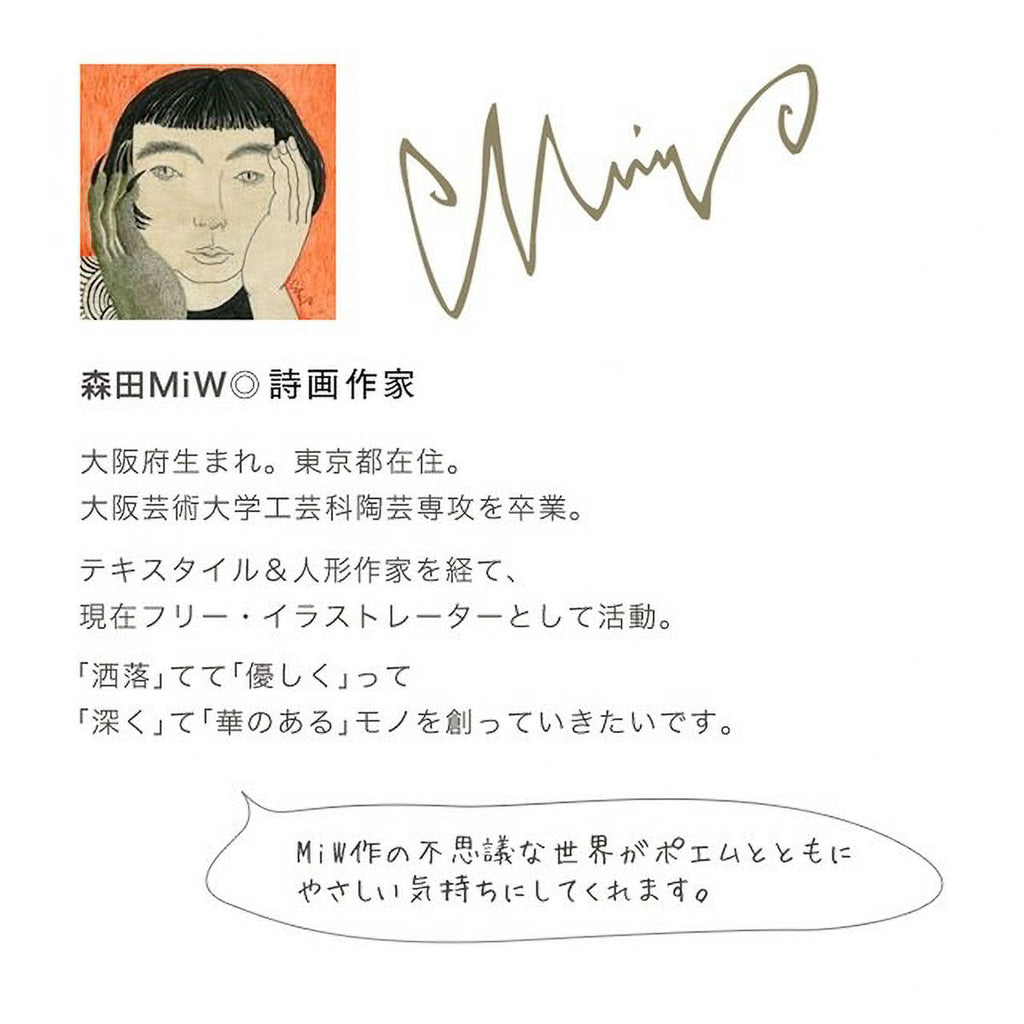 森田MiW◎詩画作家
大阪府生まれ。東京都在住。
大阪芸術大学工芸科陶芸専攻を卒業。
テキスタイル&人形作家を経て、
現在フリー・イラストレーターとして活動。
「洒落」てて「優しく」って
「深く」て「華のある」モノを創っていきたいです。
MiW作の不思議な世界がポエムとともに
やさしい気持ちにしてくれます。